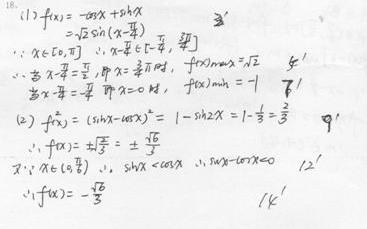 18.
(1) f(x) = -cosx + sinx 3'
= √2 sin(x - π/4)
∵ x∈[0, π] ∴ x - π/4 ∈ [-π/4, 3π/4]
∴ 当 x - π/4 = π/2, 即 x = 3/4 π 时, f(x)max = √2 5'
当 x - π/4 = -π/4 即 x = 0 时, f(x)min = -1 7'
(2) f²(x) = (sinx - cosx)² = 1 - sin2x = 1 - 1/3 = 2/3 9'
∴ f(x) = ±√(2/3) = ± √6/3
又∵ x∈(0, π/6) ∴ sinx < cosx ∴ sinx - cosx < 0 12'
∴ f(x) = - √6/3 14'